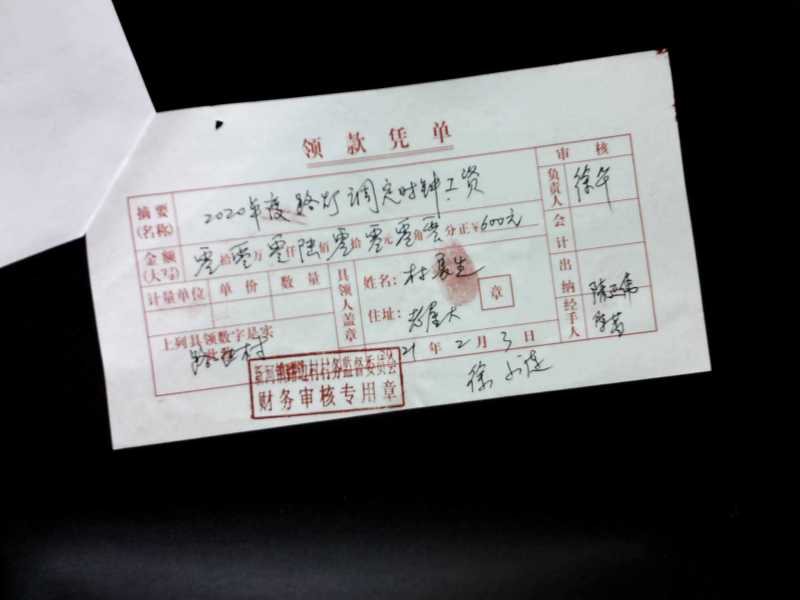 领款凭单
摘要(名称) 2020年度路灯调定时钟工资
金额(大写) 零拾零万零仟陆佰零拾零元零角零分正¥600元
计量单位 单价 数量
具领人盖章
姓名:
住址:
章
上列具领数字是实
21年2月3日
村务监督委员会
财务审核专用章
徐
审核
负责人 徐
会计
出纳
经手人